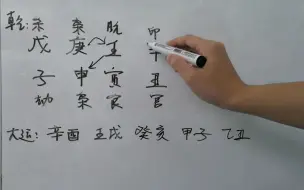 乾: 杀 枭 印
戊 庚 壬
子 申 寅 丑
劫 枭 食 官
大运: 辛酉 壬戌 癸亥 甲子 乙丑